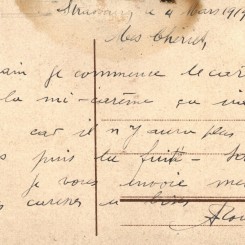 Strasbourg le 4 mars 191
Mes chéries,
ain je commence le car
la mi-carême ça
car il n'y aura plus
puis la suite -
je vous envoie mes
caresses